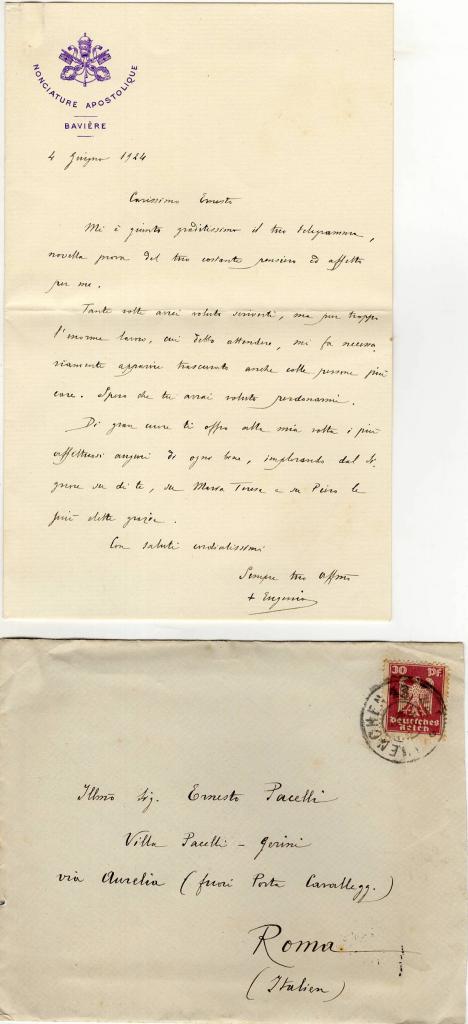 NONCIATURE APOSTOLIQUE
BAVIÈRE
4 Giugno 1924
Carissimo Ernesto
Mi è giunto graditissimo il tuo telegramma,
novella prova del tuo costante pensiero ed affetto
per me.
Tante volte avrei voluto scriverti, ma pur troppo
l'enorme lavoro, cui debbo attendere, mi fa necessa
riamente apparire trascurato anche colle persone più
care. Spero che tu avrai voluto perdonarmi.
Di gran cuore ti offro alla mia volta i più
affettuosi auguri di ogni bene, implorando dal Si
gnore su di te, su Maria Teresa e su Piero le
più elette grazie.
Con saluti cordialissimi
Sempre tuo affmo
+ Eugenio
30 Pf.
Deutsches
Reich
MUENCHEN
Illmo Sig. Ernesto Pacelli
Villa Pacelli - Gerini
via Aurelia (fuori Porta Cavallegg.)
Roma
(Italien)